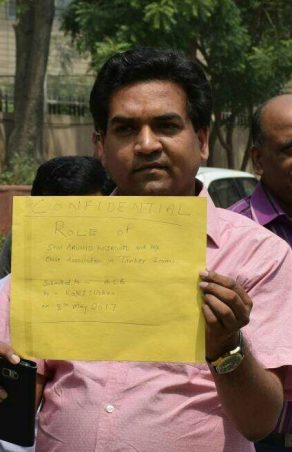 CONFIDENTIAL
ROLE OF
SHRI ARVIND KEJRIWAL and his
Close Associates in Tanker Scam
Submitted to - ACB
by - Kapil Mishra
on - 8th May 2017